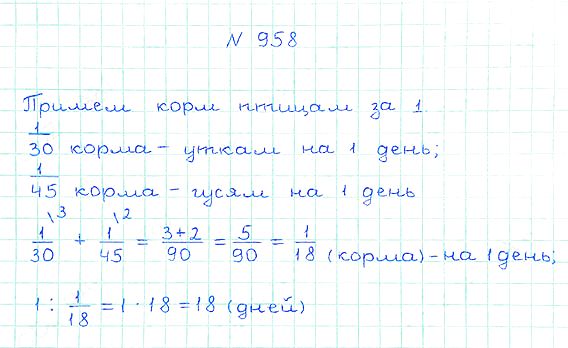 N 958
Примем корм птицам за 1.
1/30 корма – уткам на 1 день;
1/45 корма – гусям на 1 день
1/30 \3 + 1/45 \2 = 3+2/90 = 5/90 = 1/18 (корма) – на 1 день;
1 : 1/18 = 1 · 18 = 18 (дней)